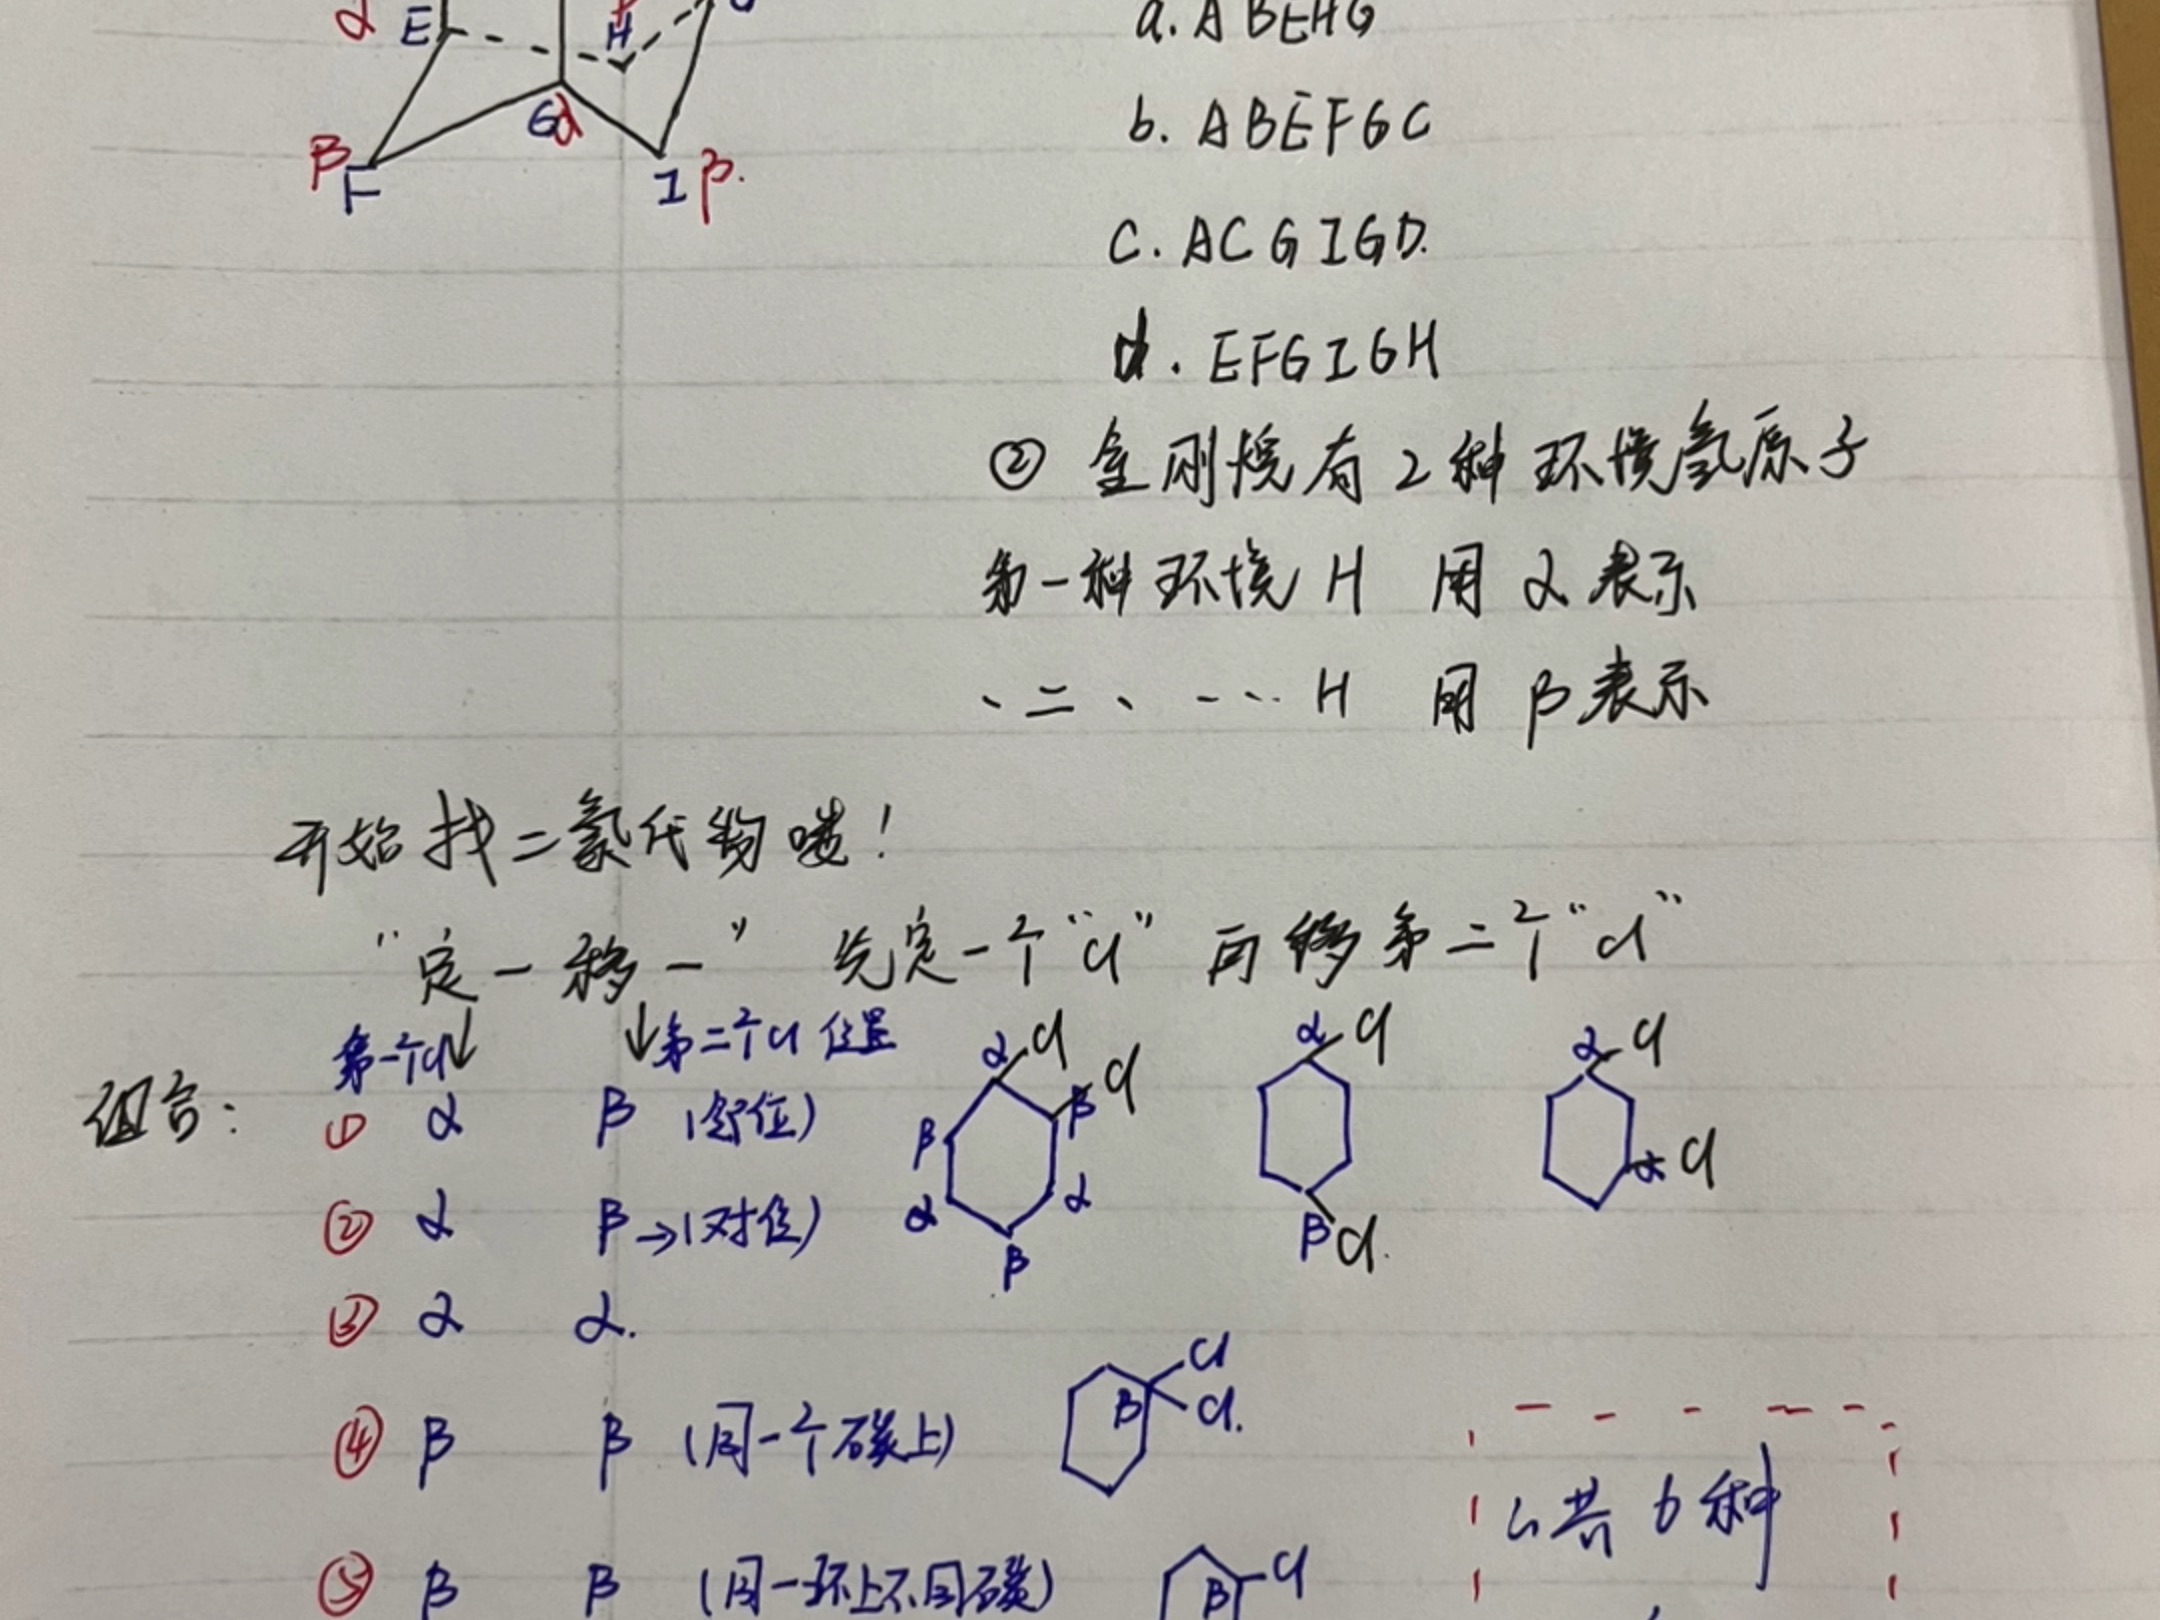 α E H
a. ABEHG
b. ABEFGC
β F Gα I β.
c. ACGIGD.
d. EFGIGH
② 金刚烷有2种环境氢原子
第一种环境 H 用 α 表示
、二、--... H 用 β 表示
开始找二氯代物喽!
“定一移一” 先定一个“Cl” 再移第二个“Cl”
第一个Cl↓ ↓第二个Cl位置
组合:
① α β (邻位)
② α β→(对位)
③ α α.
α Cl β Cl α β α β
α Cl β Cl.
α Cl α Cl
④ β β (同一个碳上)
β Cl Cl.
⑤ β β (同一环上不同碳)
β Cl
共6种